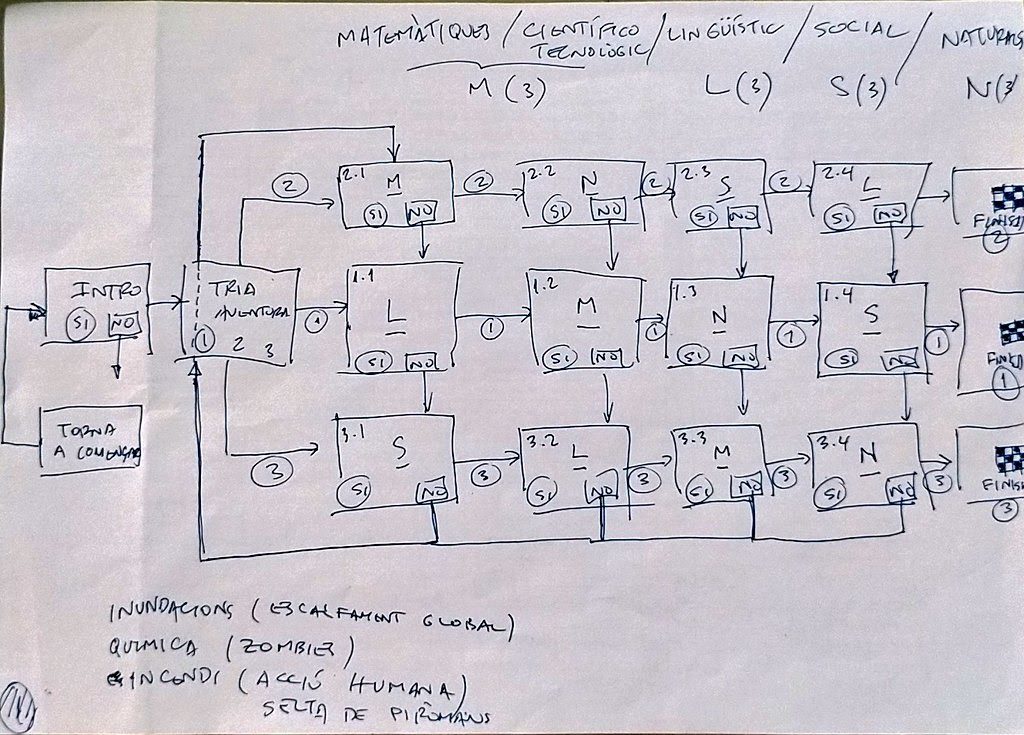 MATEMÀTIQUES / CIENTÍFICO TECNOLÒGIC / LINGÜÍSTIC / SOCIAL / NATURALS
M (3) L (3) S (3) N (3
2 2.1 M SI NO 2 2.2 N SI NO 2 2.3 S SI NO 2 2.4 L SI NO FINISH 2
INTRO SI NO
TRIA AVENTURA 1 2 3
1 1.1 L SI NO 1 1.2 M SI NO 1 1.3 N SI NO 1 1.4 S SI NO 1 FINISH 1
TORNA A COMENÇAR
3 3.1 S SI NO 3 3.2 L SI NO 3 3.3 M SI NO 3 3.4 N SI NO 3 FINISH 3
INUNDACIONS (ESCALFAMENT GLOBAL)
QUIMICA (ZOMBIES)
INCENDI (ACCIÓ HUMANA)
SELTA DE PIRÒMANS